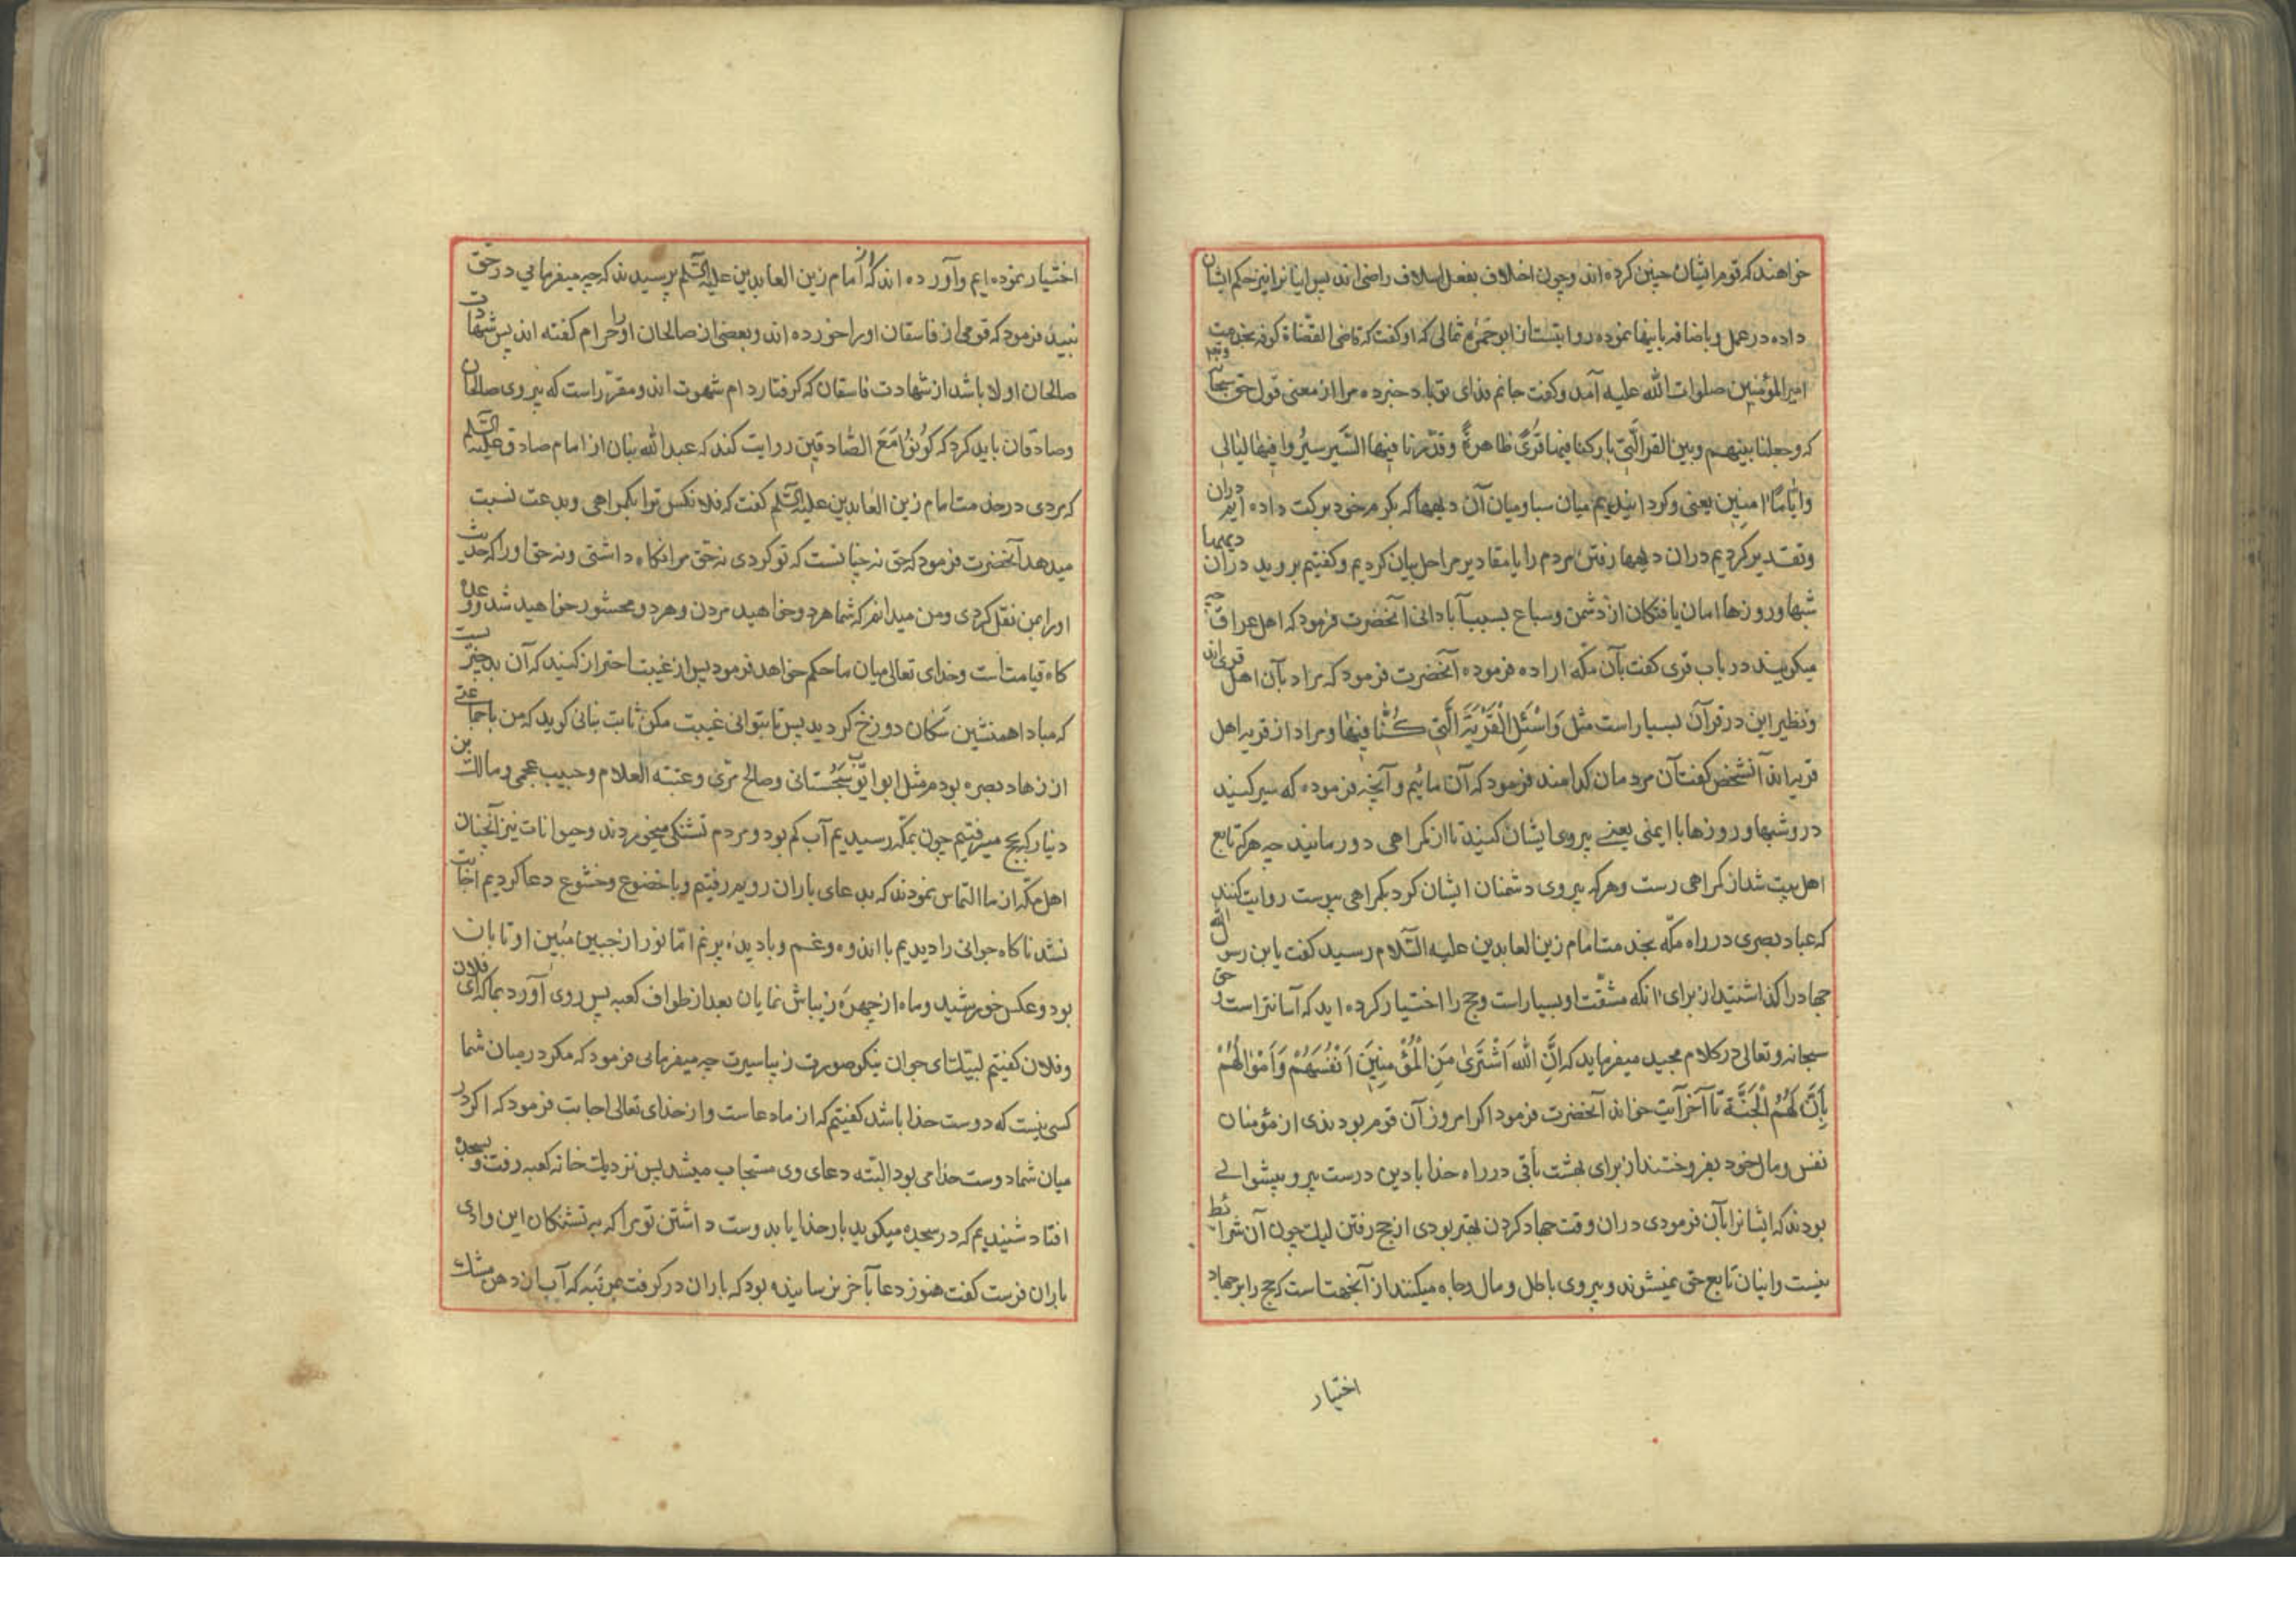 خواهند که قوم ایشان چنین کرده اند و چون اخلاف بفعل اسلاف راضی اند پس اینانرا نیز حکم ایشان
داده در عمل و باضافه باینها نموده روایتست از ابو حمزه ثمالی که او گفت که قاضی القضاة کوفه بخدمت
امیر المؤمنین صلوات الله علیه آمد و گفت جانم فدای تو باد خبر ده مرا از معنی قول حق سبحانه
که وجعلنا بینهم وبین القری الّتی بارکنا فیها قُریً ظاهرةً وقدّرنا فیها السَّیر سیرُوا فیها لیالی
وایّامًا امنین یعنی و کردانیدیم میان سبا و میان آن دیهها که بکرم خود برکت داده ایم دران
وتقدیر کردیم دران دیهها رفتن مردم را یا مقادیر مراحل بیان کردیم و کفتیم بروید دران دیهها
شبها و روزها امان یافتکان از دشمن و سباع بسبب آبادانی آنحضرت فرمود که اهل عراق چه
میکویند در باب قری کفت بآن مکّه اراده فرموده آنحضرت فرمود که مراد بآن اهل قری اند
و نظیر این در قرآن بسیار است مثل وَاسْئَلِ الْقَرْیَةَ الَّتِی کُنّا فِیها و مراد از قریه اهل
قریه اند آنشخص کفت آن مردمان کدامند فرمود که آن مائیم و آنچه فرموده که سیر کنید
درو شبها و روزها با ایمنی یعنے پیروی ایشان کنید تا از کمراهی دور مانید چه هرکه تابع
اهل بیت شد از کمراهی رست و هرکه پیروی دشمنان ایشان کرد بکمراهی پیوست روایت کنند
که عباد بصری در راه مکّه بخدمت امام زین العابدین علیه السّلام رسید کفت یابن رسول الله
جهاد را کذاشتید از برای انکه مشقّت او بسیار است و حج را اختیار کرده اید که آسانتر است و حق
سبحانه و تعالی در کلام مجید میفرماید که اِنَّ اللهَ اشْتَریٰ مِنَ الْمُؤْمِنِینَ اَنْفُسَهُمْ وَاَمْوالَهُمْ
بِاَنَّ لَهُمُ الْجَنَّةَ تا آخر آیت خواند آنحضرت فرمود اکر امروز آن قوم بودندی از مؤمنان
نفس و مال خود بفروختند از برای بهشت باقی در راه خدا با دین درست پیرو پیشوائے
بودند که ایشانرا بآن فرمودی دران وقت جهاد کردن بهتر بودی از حج رفتن لیک چون آن شرائط
نیست و اینان تابع حق نمیشوند و پیروی باطل و مال و جاه میکنند از آنجهتست که حج را بر جهاد
اختیار
اختیار نموده ایم و آورده اند که از امام زین العابدین علیه السّلم پرسیدند که چه میفرمائی در حق
نبید فرمود که قومی از فاسقان او را خورده اند و بعضی از صالحان او را حرام کفته اند پس شهادت
صالحان اولا باشد از شهادت فاسقان که کرفتار دام شهوت اند و مقرّر است که پیروی صالحان
و صادقان باید کرد که کُونُوا مَعَ الصّادقین روایت کند که عبد الله بنان از امام صادق علیه السّلم
که مردی در خدمت امام زین العابدین علیه السّلم کفت که فلانکس ترا بکمراهی و بدعت نسبت
میدهد آنحضرت فرمود که حق نه چنانست که تو کردی نه حق مرا نکاه داشتی و نه حق او را که حدیث
او را بمن نقل کردی و من میدانم که شما هردو خواهید مردن و هردو محشور خواهید شد و وعده
کاه قیامتست و خدای تعالی میان ما حکم خواهد فرمود پس از غیبت احتراز کنید که آن بد چیزیست
که مبادا همنشین سکان دوزخ کردید پس تا بتوانی غیبت مکن ثابت بنانی کوید که من با جماعتی
از زهاد بصره بودم مثل ابو ایّوب سجستانی و صالح مرّی و عتبه العلام و حبیب عجمی و مالک بن
دینار که بحج میرفتیم چون بمکّه رسیدیم آب کم بود و مردم تشنکی میخوردند و حیوانات نیز آنچنان
اهل مکّه از ما التماس نمودند که بدعای باران رویم رفتیم و باخضوع و خشوع دعا کردیم اجابت
نشد ناکاه جوانی را دیدیم با اندوه و غم و با دیدۀ پرنم امّا نور از جبین مُبین او تابان
بود و عکس خورشید و ماه از چهرۀ زیباش نمایان بعد از طواف کعبه پس روی آورد بما که ای فلان
و فلان کفتیم لبیک ای جوان نیکو صورت زیبا سیرت چه میفرمائی فرمود که مکر در میان شما
کسی نیست که دوست خدا باشد کفتیم که از ما دعاست و از خدای تعالی اجابت فرمود که اکر در
میان شما دوست خدا می بود البته دعای وی مستجاب میشد پس نزدیک خانه کعبه رفت و بسجده
افتاد شنیدیم که در سجده میکوید بار خدایا بدوست داشتن تو مرا که به تشنکان این وادی
باران فرست کفت هنوز دعا بآخر نرسانیده بود که باران در کرفت بمرتبه که آب از دهن مشک